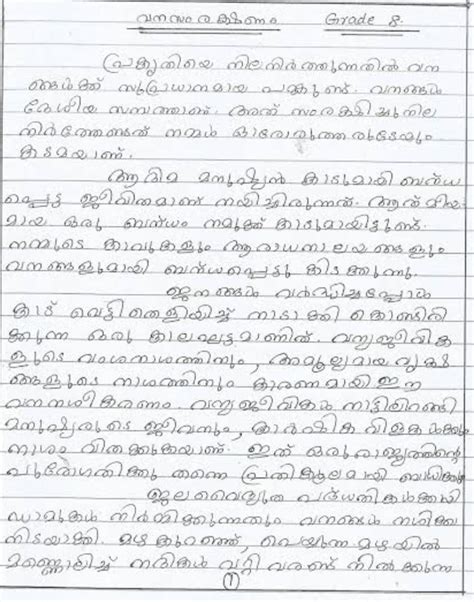 വനസംരക്ഷണം Grade 8.
പ്രകൃതിയെ നിലനിർത്തുന്നതിൽ വന
ങ്ങൾക്ക് സുപ്രധാനമായ പങ്കുണ്ട്. വനങ്ങൾ
ദേശീയ സമ്പത്താണ്. അത് സംരക്ഷിച്ചു നില
നിർത്തേണ്ടത് നമ്മൾ ഓരോരുത്തരുടേയും
കടമയാണ്.
ആദിമ മനുഷ്യൻ കാടുമായി ബന്ധ
പ്പെട്ട ജീവിതമാണ് നയിച്ചിരുന്നത്. ആത്മീയ
മായ ഒരു ബന്ധം നമുക്ക് കാടുമായിട്ടുണ്ട്.
നമ്മുടെ കാവുകളും ആരാധനാലയങ്ങളും
വനങ്ങളുമായി ബന്ധപ്പെട്ടു കിടക്കുന്നു.
ജനങ്ങൾ വർദ്ധിച്ചപ്പോൾ
കാട് വെട്ടിത്തെളിയിച്ച് നാടാക്കി കൊണ്ടിരി
ക്കുന്ന ഒരു കാലഘട്ടമാണിത്. വന്യജീവിക
ളുടെ വംശനാശത്തിനും, അമൂല്യമായ വൃക്ഷ
ങ്ങളുടെ നാശത്തിനും കാരണമായി ഈ
വനനശീകരണം. വന്യജീവികൾ നാട്ടിലിറങ്ങി
മനുഷ്യരുടെ ജീവനും, കാർഷിക വിളകൾക്കും
നാശം വിതക്കുകയാണ്. ഇത് ഒരു രാജ്യത്തിന്റെ
പുരോഗതിക്കു തന്നെ പ്രതികൂലമായി ബാധിക്കും
ജലവൈദ്യുത പദ്ധതികൾക്കായി
ഡാമുകൾ നിർമ്മിക്കുന്നതും വനങ്ങൾ നശിക്ക
നിടയാക്കി. മഴ കുറഞ്ഞ്, പെയ്യുന്ന മഴയിൽ
മണ്ണൊലിച്ച് നദികൾ വറ്റി വരണ്ട് നിൽക്കുന്ന
1